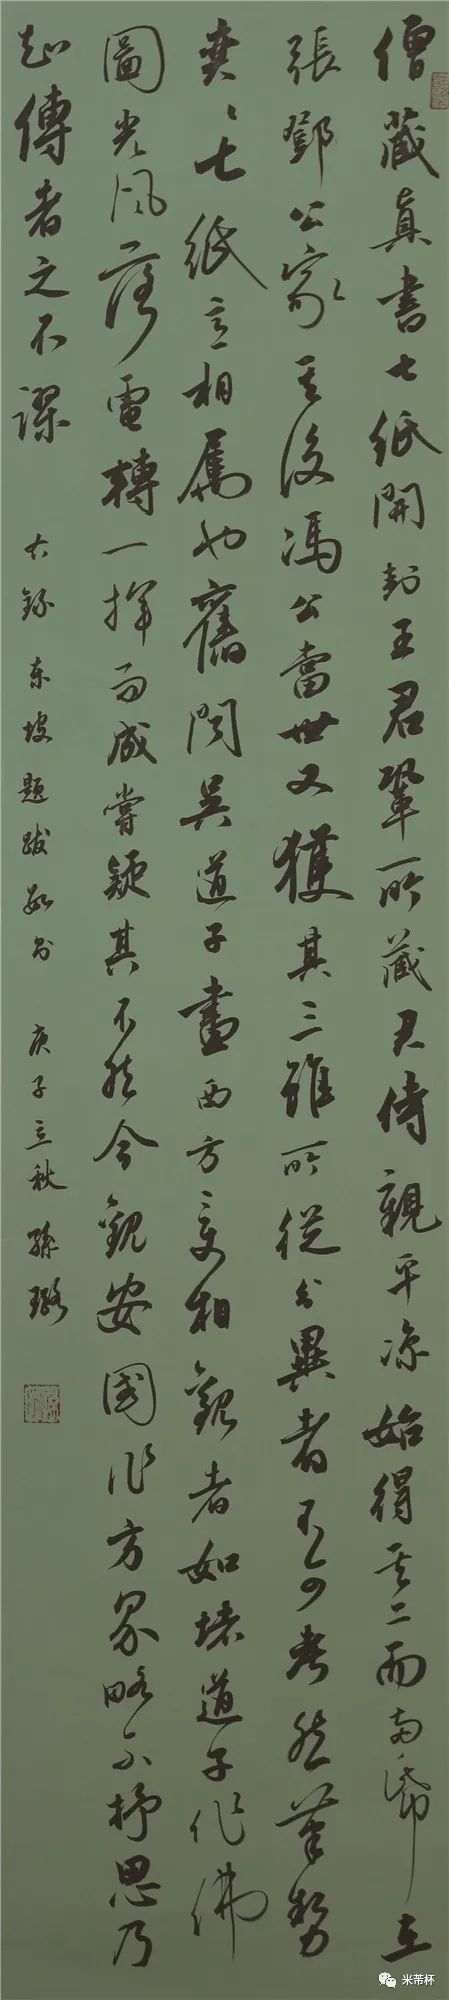 僧藏真書七紙開封王君鞏所藏君侍親平涼始得其二而兩紙在
張鄧公家其後馮公當世又獲其三雖所從分異者不可考然筆勢
奕奕七紙意相屬也舊聞吴道子畫西方變相觀者如堵道子作佛
圖光風落電轉一揮而成嘗疑其不然今觀安國作方界略不抒思乃
知傳者之不謬
右錄東坡題跋數則 庚子立秋 孫璐
米芾杯